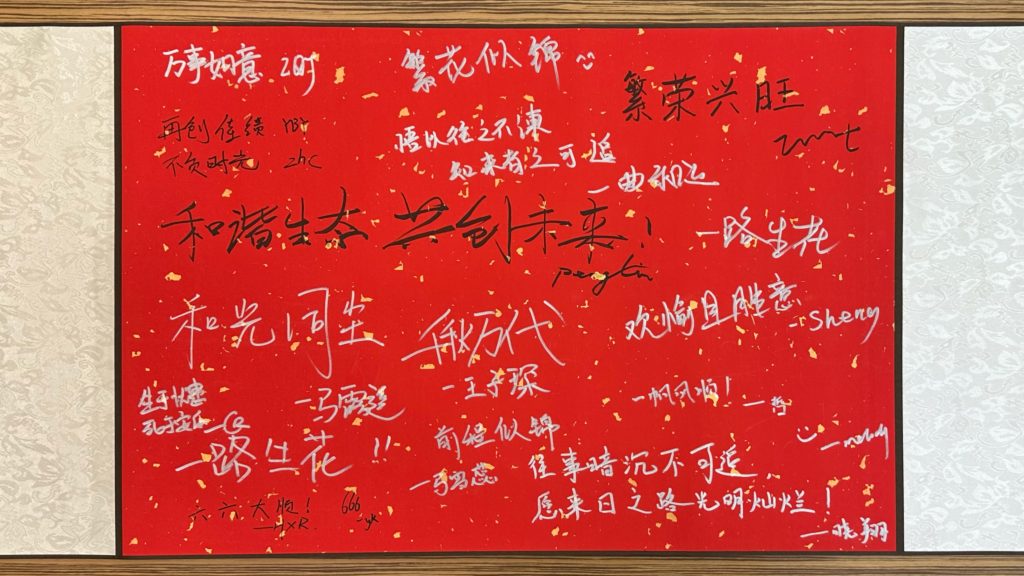 万事如意 zqj
繁花似锦
繁荣兴旺
再创佳绩
不负时光 zhc
悟以往之不谏
知来者之可追
一曲相思
和谐生态 共创未来！
pengtin
一路生花
和光同尘
千秋万代
—王子琛
欢愉且胜意
- Sheng
生于忧患
死于安乐
一帆风顺！
一路生花 !!
前程似锦
melody
往事暗沉不可追
愿来日之路光明灿烂！
—晓翔
六六大顺！
—yxR
666
-yk